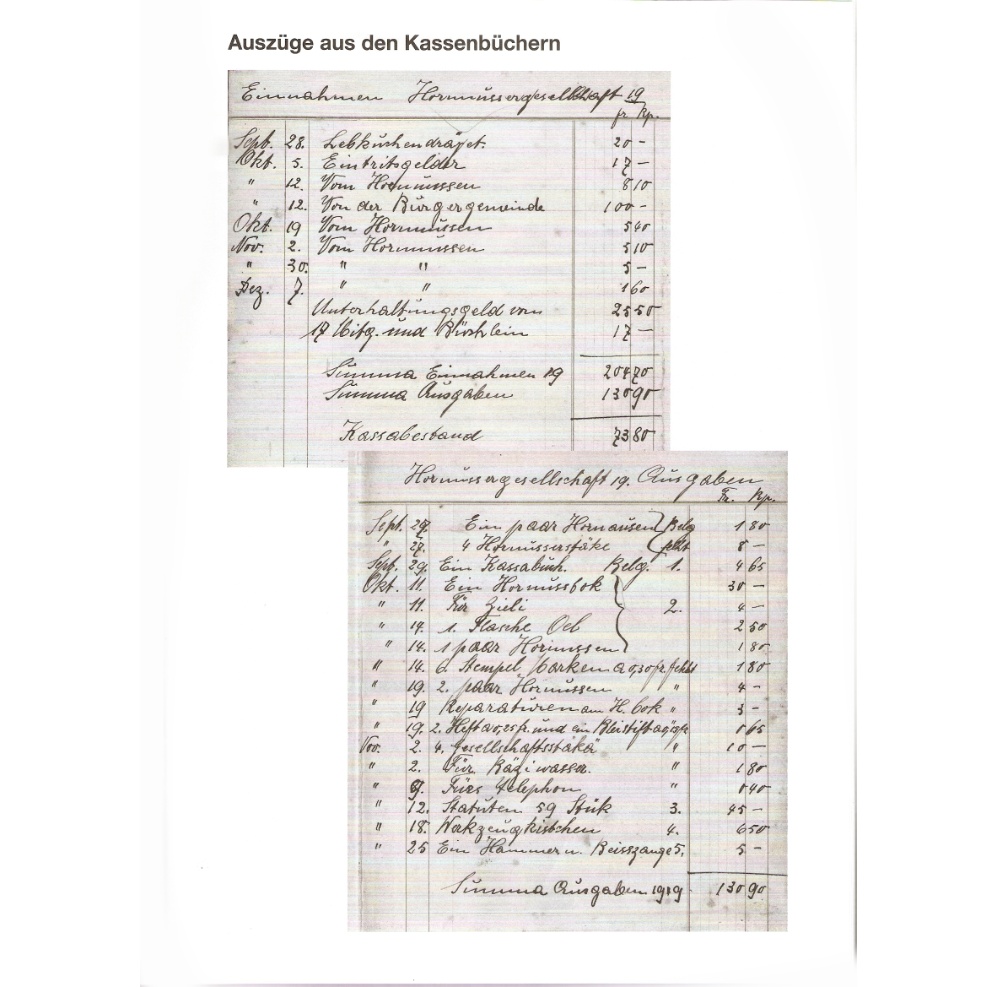 Auszüge aus den Kassenbüchern
Einnahmen Hornussergesellschaft 19
fr. Rp.
Sept. 28. Lebkuchendräjet. 20 –
Okt. 5. Eintritsgelder 17 –
" 12. Vom Hornussen 8 10
" 12. Von der Bürgergemeinde 100 –
Okt. 19 Vom Hornussen 5 40
Nov. 2. Vom Hornussen 5 10
" 30. " " 5 –
Dez. 7. " " 1 60
Unterhaltungsgeld vom 25 50
17 Mitg. und Büchlein 17 –
Summa Einnahmen 19 204 70
Summa Ausgaben 130 90
Kassabestand 73 80
Hornussergesellschaft 19. Ausgaben
Fr. Rp.
Sept. 27. Ein paar Hornussen Belg 1 80
" 27. 4 Hornusserstäke fehlt 8 –
Sept. 29. Ein Kassabuch. Belg. 1. 4 65
Okt. 11. Ein Hornussbok 30 –
" 11. Für Zieli 2. 4 –
" 14. 1. Flasche Oel 2 50
" 14. 1 paar Hornussen 1 80
" 14. 6. Stempel Marken a 0,30 fr fehlt 1 80
" 19. 2. paar Hornussen " 4 –
" 19 Reparaturen am H. bok " 3 –
" 19. 2. Heft a 0,25 fr. und ein Bleistift 0 65
Nov. 2. 4. Gesellschaftsstäkä " 10 –
" 2. Für Bäzi wasser. " 1 80
" 9. Fürs Telephon " 0 40
" 12. Statuten 59 Stük 3. 45 –
" 18. Werkzeugkistchen 4. 6 50
" 25 Ein Hammer u. Beisszange 5. 5 –
Summa Ausgaben 1919 130 90